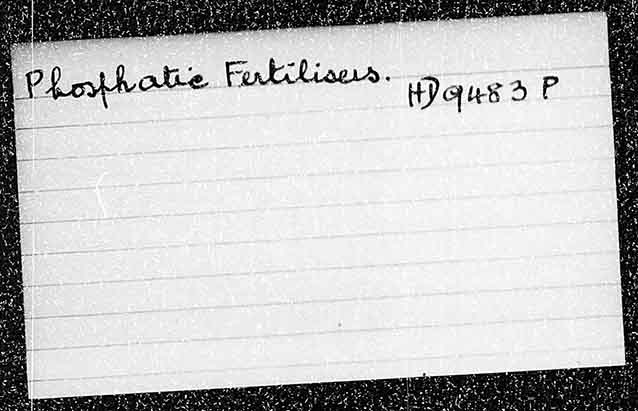 Phosphatic Fertilisers.
HD9483 P